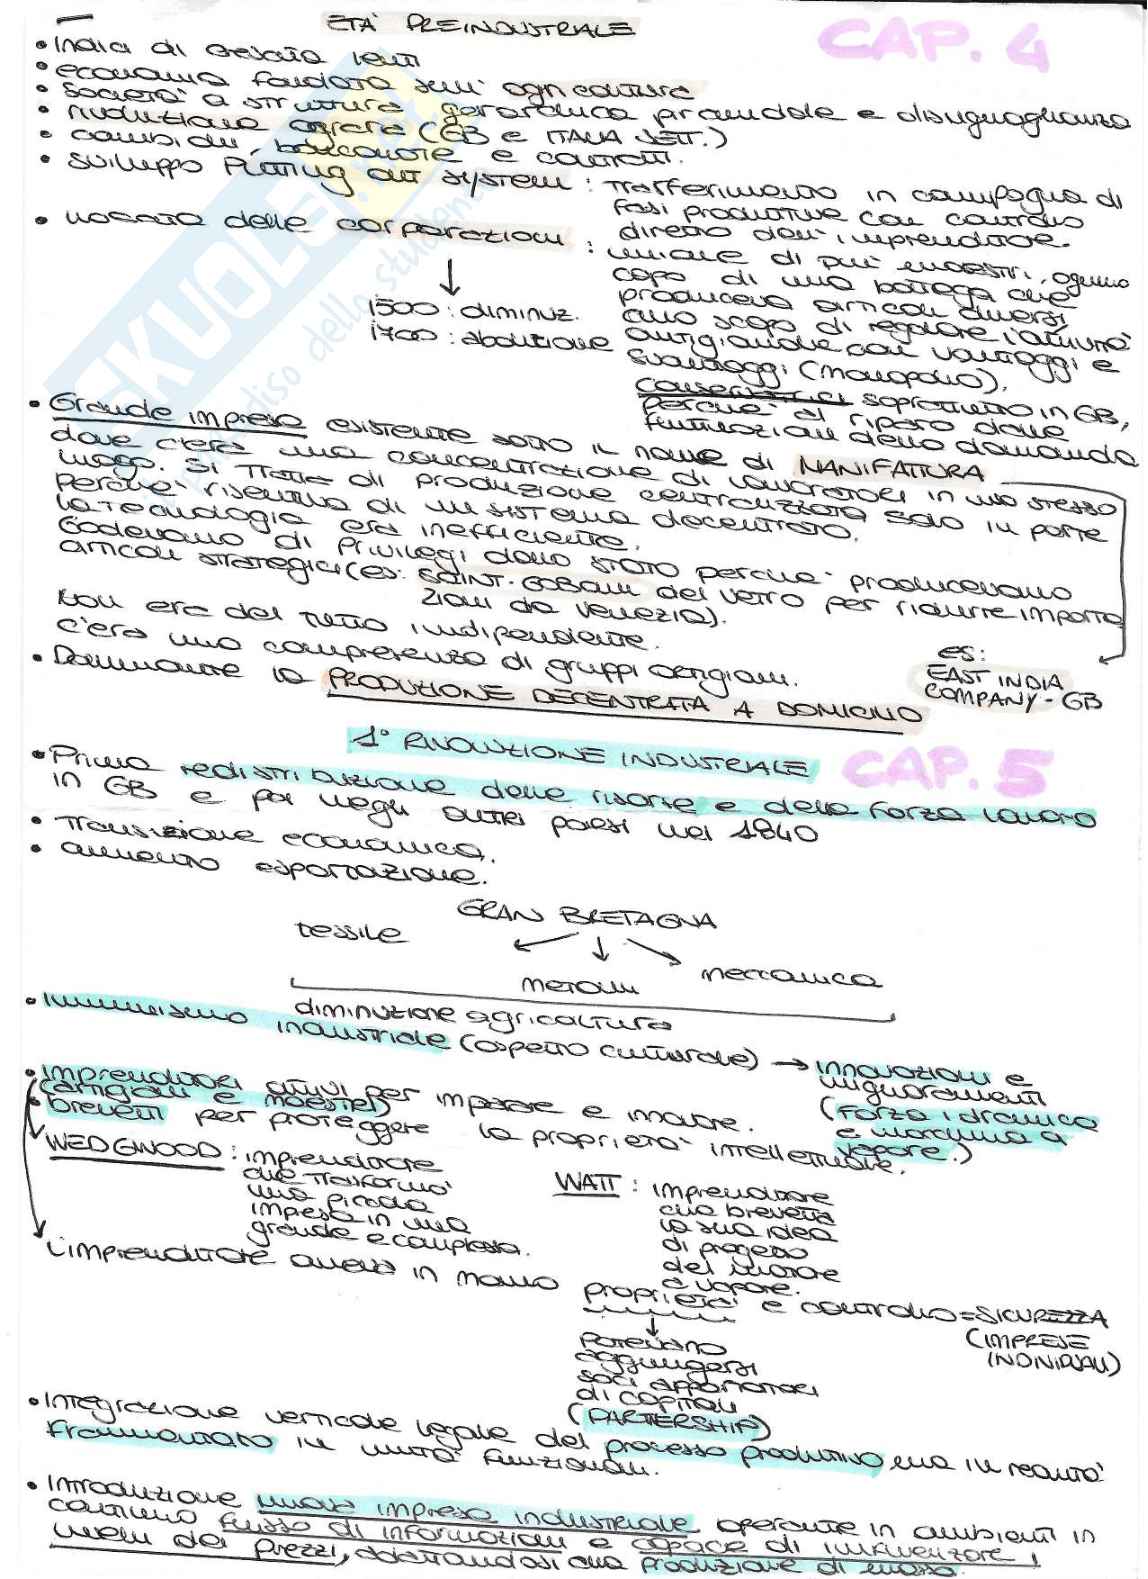 ETÀ PREINDUSTRIALE
CAP. 4
• Indici di crescita lenti
• economia fondata sull'agricoltura
• società a struttura gerarchica piramidale e disuguaglianza
• rivoluzione agraria (GB e ITALIA SETT.)
• cambiali, banconote e contratti.
• sviluppo Putting out system : trasferimento in campagna di
fasi produttive con controllo
diretto dell'imprenditore.
• nascita delle corporazioni : unione di più maestri, ognuno
capo di una bottega che
produceva articoli diversi
allo scopo di regolare l'attività
artigianale con vantaggi e
svantaggi (monopolio).
1500: diminuz.
1700: abolizione
soprattutto in GB,
perché al riparo dalle
fluttuazioni della domanda
• Grande impresa esistente sotto il nome di MANIFATTURA
dove c'era una concentrazione di lavoratori in uno stesso
luogo. Si tratta di produzione centralizzata solo in parte
perché risentiva di un sistema decentrato.
La tecnologia era inefficiente.
Godevano di privilegi dallo stato perché producevano
articoli strategici (es: SAINT-GOBAIN del vetro per ridurre importa
zioni da Venezia).
Non era del tutto indipendente.
c'era una compresenza di gruppi artigiani.
es:
EAST INDIA
COMPANY - GB
• Dominante la PRODUZIONE DECENTRATA A DOMICILIO
1° RIVOLUZIONE INDUSTRIALE
CAP. 5
• Prima redistribuzione delle risorse e della forza lavoro
in GB e poi negli altri paesi nel 1840
• Transizione economica.
• aumento esportazione.
GRAN BRETAGNA
tessile
metalli
meccanica
diminuzione agricoltura
• Illuminismo industriale (aspetto culturale) → innovazioni e
miglioramenti
(forza idraulica
e macchina a
vapore.)
• Imprenditori attivi per imparare e innovare.
(artigiani e maestri)
• brevetti per proteggere la proprietà intellettuale.
WEDGWOOD : imprenditore
che trasformò
una piccola
impresa in una
grande e complessa.
WATT : imprenditore
che brevetta
la sua idea
di progetto
del motore
a vapore.
L'imprenditore aveva in mano proprietà e controllo = SICUREZZA
(IMPRESE
INDIVIDUALI)
potevano
aggiungersi
soci apportatori
di capitali
(PARTERSHIP)
• Integrazione verticale legale del processo produttivo ma in realtà
frammentato in unità funzionali.
• Introduzione nuova impresa industriale operante in ambienti in
continuo flusso di informazioni e capace di influenzare i
livelli dei prezzi, adattandosi alla produzione di massa.
SKUOLA.net
il paradiso dello studente